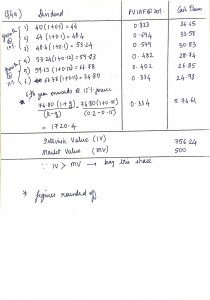 Q4a) Dividend PVIAF@20% Cash Flow
growth @ 10%
1) 40(1+0.1) = 44 0.833 36.65
2) 44(1+0.1) = 48.4 0.694 33.58
3) 48.4(1+0.1) = 53.24 0.579 30.83
4) 53.24(1+0.12) = 59.63 0.482 28.74
5) 59.63(1+0.12) = 66.78 0.402 26.85
6) 66.78(1+0.12) = 74.80 0.334 24.98
6th year onwards @ 15% growth
74.80(1+g) = 74.80(1+0.15) 0.334 574.61
(k-g) (0.2-0.15)
= 1720.4
Intrinsic Value (IV) 756.24
Market Value (MV) 500
∵ IV > MV → buy this share
* figures rounded off